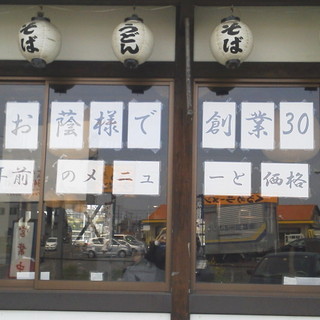 そば
うどん
そば
お蔭様で 創業30
年前のメニュ ーと価格
営業中